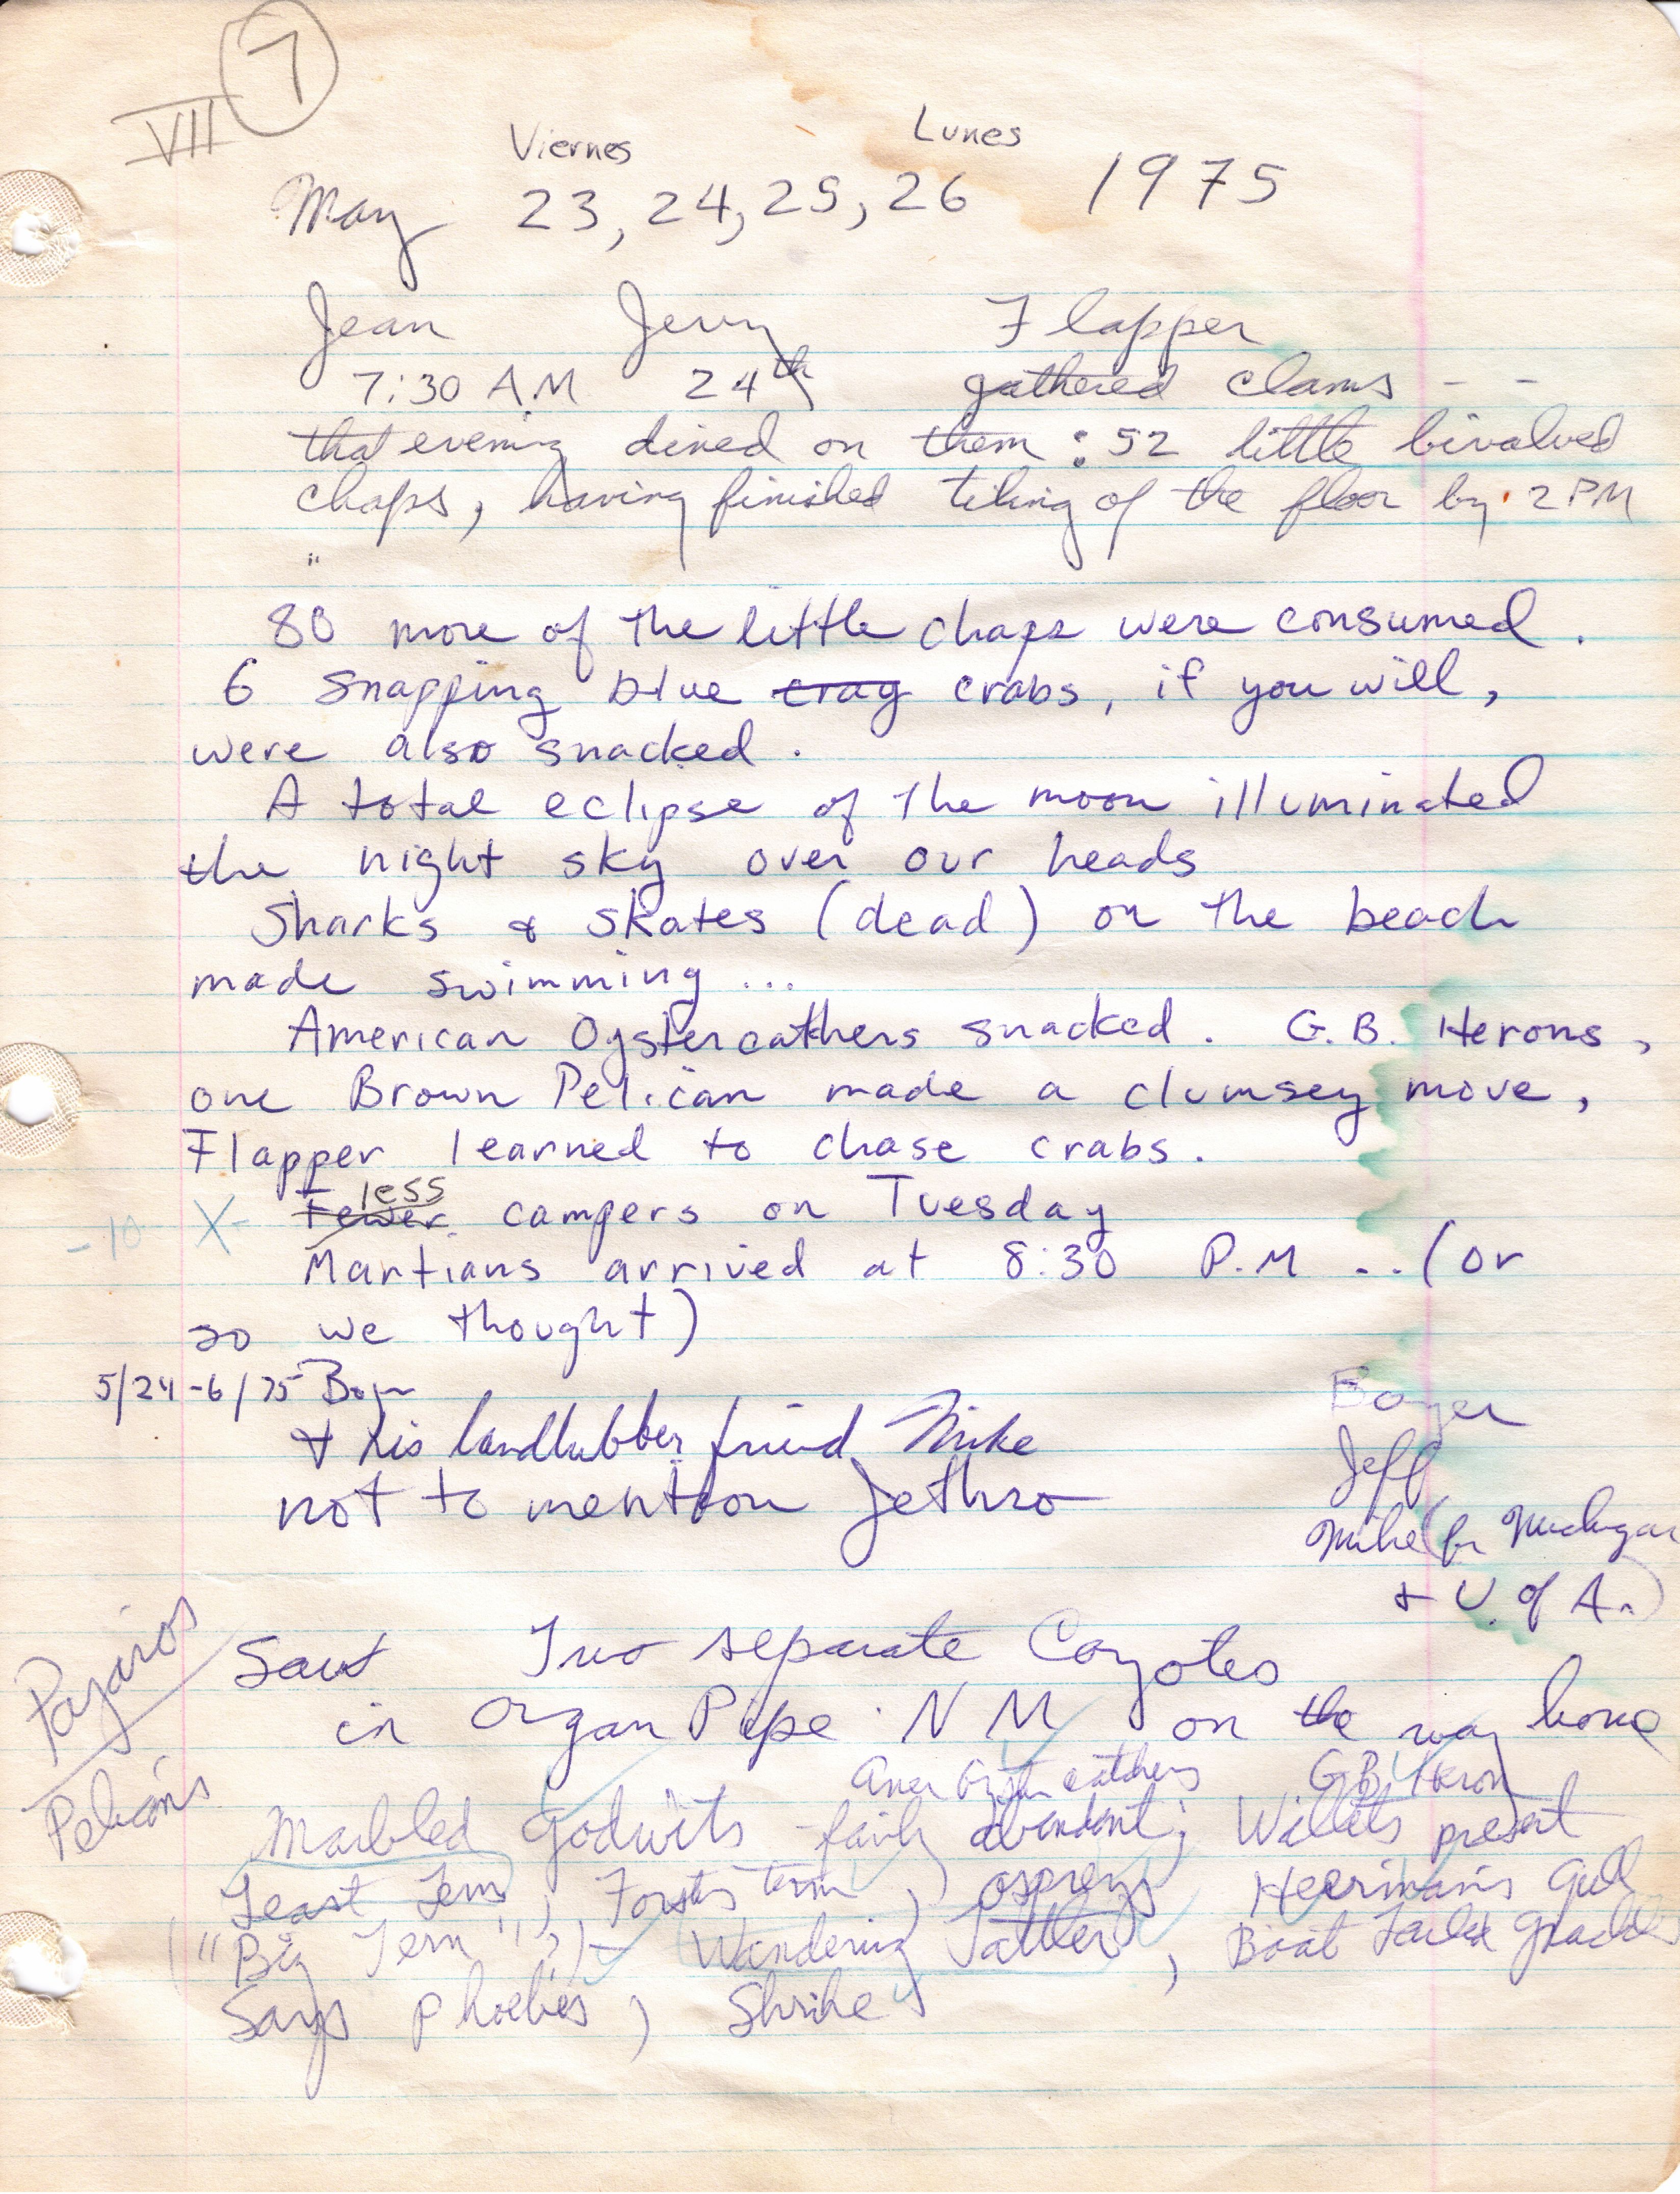 7
VII
Viernes Lunes
May 23, 24, 25, 26 1975
Jean Jerry Flapper
7:30 A.M 24th gathered clams - -
that evening dined on them: 52 little bivalved
chaps, having finished tiling of the floor by 2 PM
"
80 more of the little chaps were consumed.
6 snapping blue crag crabs, if you will,
were also snacked.
A total eclipse of the moon illuminated
the night sky over our heads
Sharks & skates (dead) on the beach
made swimming ...
American Oystercathers snacked. G.B. Herons,
one Brown Pelican made a clumsey move,
Flapper learned to chase crabs.
less
-10 X- Fewer campers on Tuesday
Martians arrived at 8:30 P.M ... (or
so we thought)
5/24-6/75 Boyer
& his landlubber friend Mike
not to mention Jethro
Boyer
Jeff
Mike (fr Michigan
& U. of A.)
Pajaros
Pelicans
Saw Two separate Coyotes
in Organ Pipe N M on the way home
Amer Oyster catchers G.B. Heron
Marbled Godwits - fairly abundant; Willets present
Least Terns, Forsters tern, ospreys Heermans Gull
("Big Tern"?) - Wandering Tattler, Boat Tailed Grackles
Says Phoebies, Shrike